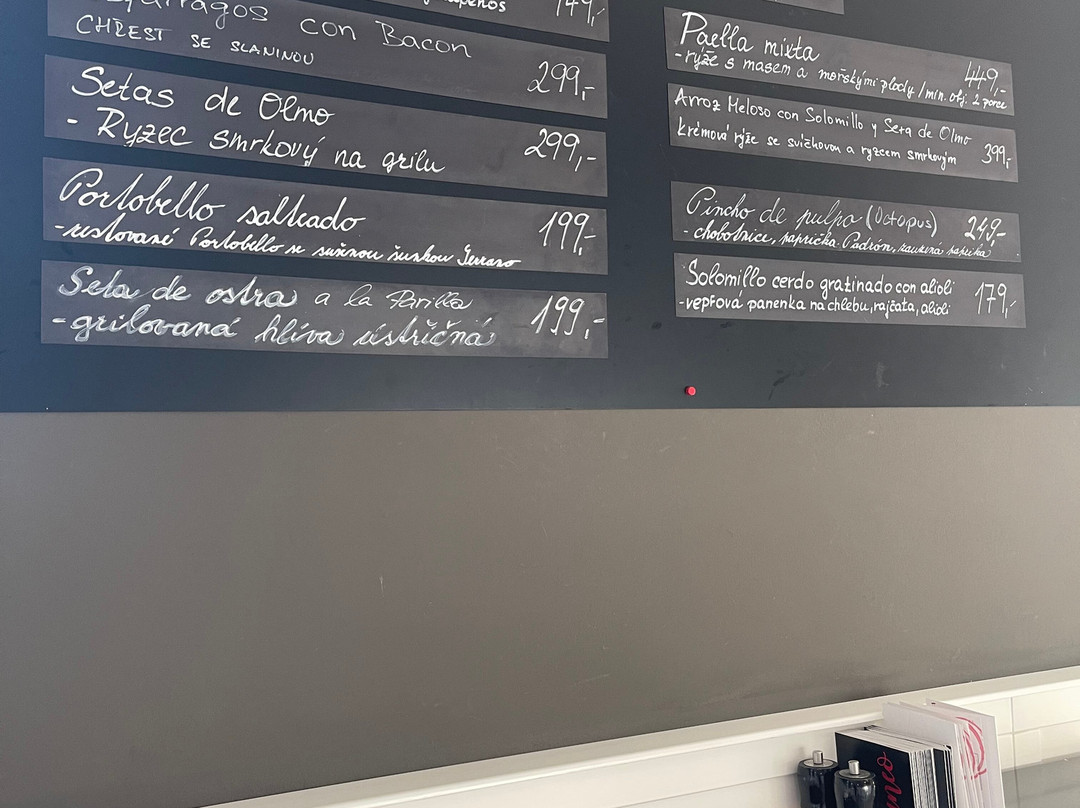 149,-
con Bacon
CHŘEST SE SLANINOU
299,-
Setas de Olmo
- Ryzec smrkový na grilu
299,-
Portobello salteado
-restované Portobello se sušenou šunkou Serrano
199,-
Seta de ostra a la Parilla
-grilovaná hlíva ústřičná
199,-
Paella mixta
-rýže s masem a mořskými plody /min. obj. 2 porce
449,-
Arroz Meloso con Solomillo y Seta de Olmo
krémová rýže se svíčkovou a ryzcem smrkovým
399,-
Pincho de pulpo (Octopus)
- chobotnice, paprička Padrón, pausená paprika
249,-
Solomillo cerdo gratinado con alioli
-vepřová panenka na chlebu, rajčata, alioli
179,-